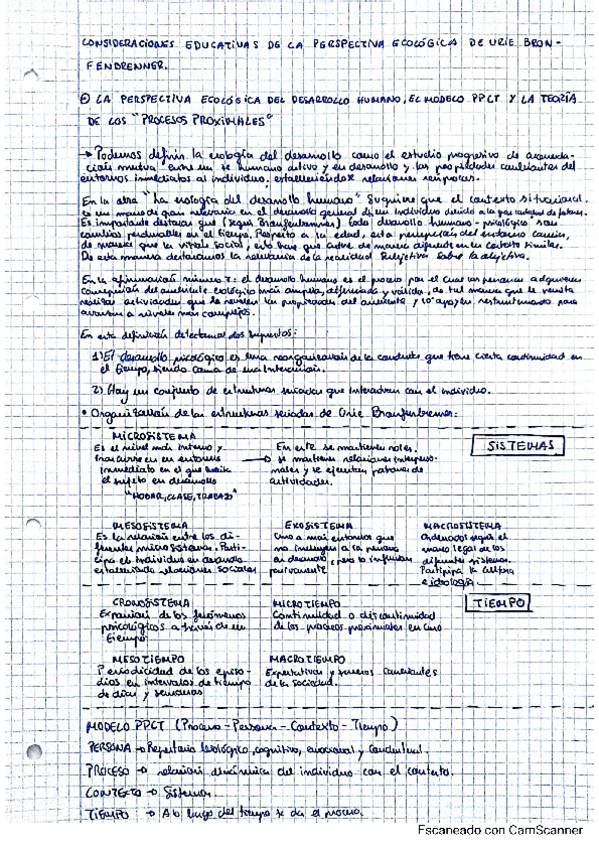 CONSIDERACIONES EDUCATIVAS DE LA PERSPECTIVA ECOLÓGICA DE URIE BRON-
FENBRENNER.
LA PERSPECTIVA ECOLÓGICA DEL DESARROLLO HUMANO, EL MODELO PPCT Y LA TEORÍA
DE LOS "PROCESOS PROXIMALES"
→ Podemos definir la ecología del desarrollo como el estudio progresivo de acomoda-
ción mutua entre un se humano activo y en desarrollo y las propiedades cambiantes del
entornos inmediatos al individuo, estableciéndose relaciones recíprocas.
En la obra "la ecología del desarrollo humano" sugiere que el contexto situacional
es un marco de gran relevancia en el desarrollo general de un individuo debido a la gran cantidad de factores.
Es importante destacar que (según Bronfenbrenner) todo desarrollo humano - psicológico son
cambios perdurables en el tiempo. Respecto a la edad, esta percepción del entorno cambia,
de manera que la vivale social, esto hace que actúe de manera diferente en contextos similares.
De esta manera destacamos la relevancia de la realidad subjetiva sobre la objetiva.
En la afirmación número 7: el desarrollo humano es el proceso por el cual las personas adquieren
concepción del ambiente ecológico más amplia, diferenciada y válida, de tal manera que le
realizar actividades que le revelen las propiedades del ambiente y lo apoyen, reestructurando para
avanzar a niveles más complejos.
En esta definición detectamos dos supuestos:
1) El desarrollo psicológico es una reorganización de la conducta que tiene cierta continuidad en
el tiempo, siendo causa de una interacción.
2) Hay un conjunto de estructuras seriadas que interactúan con el individuo.
• Organización de las estructuras seriadas de Urie Bronfenbrenner:
MICROSISTEMA
Es el nivel más interno y
transcurre en un entorno
inmediato en el que
el sujeto en desarrollo
"HOGAR, CLASE, TRABAJO"
→ En este se mantienen roles,
se mantienen relaciones interperso-
nales y se ejecutan patrones de
actividades.
SISTEMAS
MESOSISTEMA
Es la relación entre los di-
ferentes microsistemas. Parti-
cipa el individuo en desarrollo
estableciendo relaciones sociales
EXOSISTEMA
Uno o más entornos que
no incluyen a la persona
en desarrollo, pero lo influyen
MACROSISTEMA
Ordenados según el
marco legal de los
diferentes sistemas.
Participa la cultura
e ideología.
CRONOSISTEMA
Expansión de los fenómenos
psicológicos a través de un
tiempo.
MICROTIEMPO
Continuidad o discontinuidad
de los procesos proximales en curso
TIEMPO
MESOTIEMPO
Periodicidad de los episo-
dios en intervalos de tiempo
de días y semanas
MACROTIEMPO
Expectativas y sucesos cambiantes
de la sociedad.
MODELO PPCT (Proceso - Persona - Contexto - Tiempo)
PERSONA → Repertorio biológico, cognitivo, emocional y conductual.
PROCESO → relación dinámica del individuo con el contexto.
CONTEXTO → Sistemas
TIEMPO → A lo largo del tiempo se da el proceso.
Escaneado con CamScanner